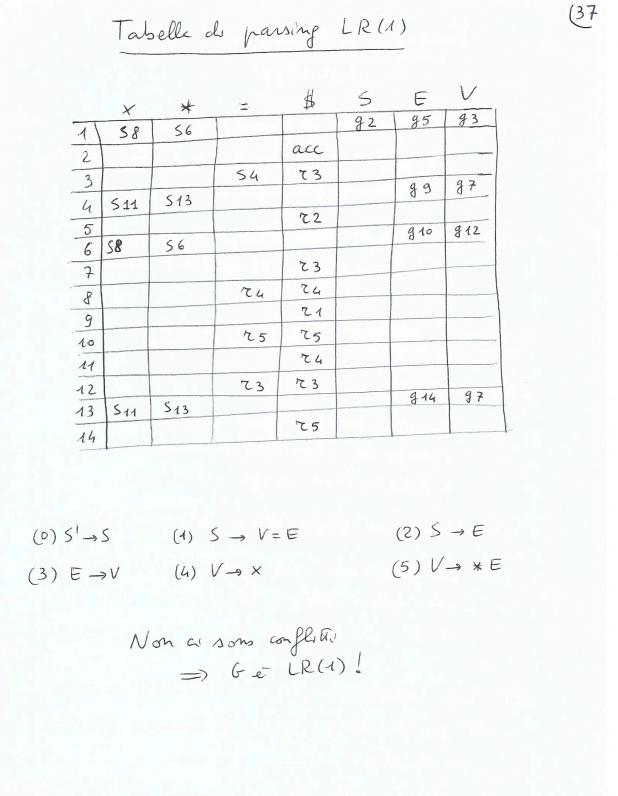 (37
Tabella di parsing LR(1)
x * = $ S E V
1 s8 s6 g2 g5 g3
2 acc
3 s4 r3
4 s11 s13 g9 g7
5 r2
6 s8 s6 g10 g12
7 r3
8 r4 r4
9 r1
10 r5 r5
11 r4
12 r3 r3
13 s11 s13 g14 g7
14 r5
(0) S' → S (1) S → V = E (2) S → E
(3) E → V (4) V → x (5) V → * E
Non ci sono conflitti
⇒ G è LR(1) !